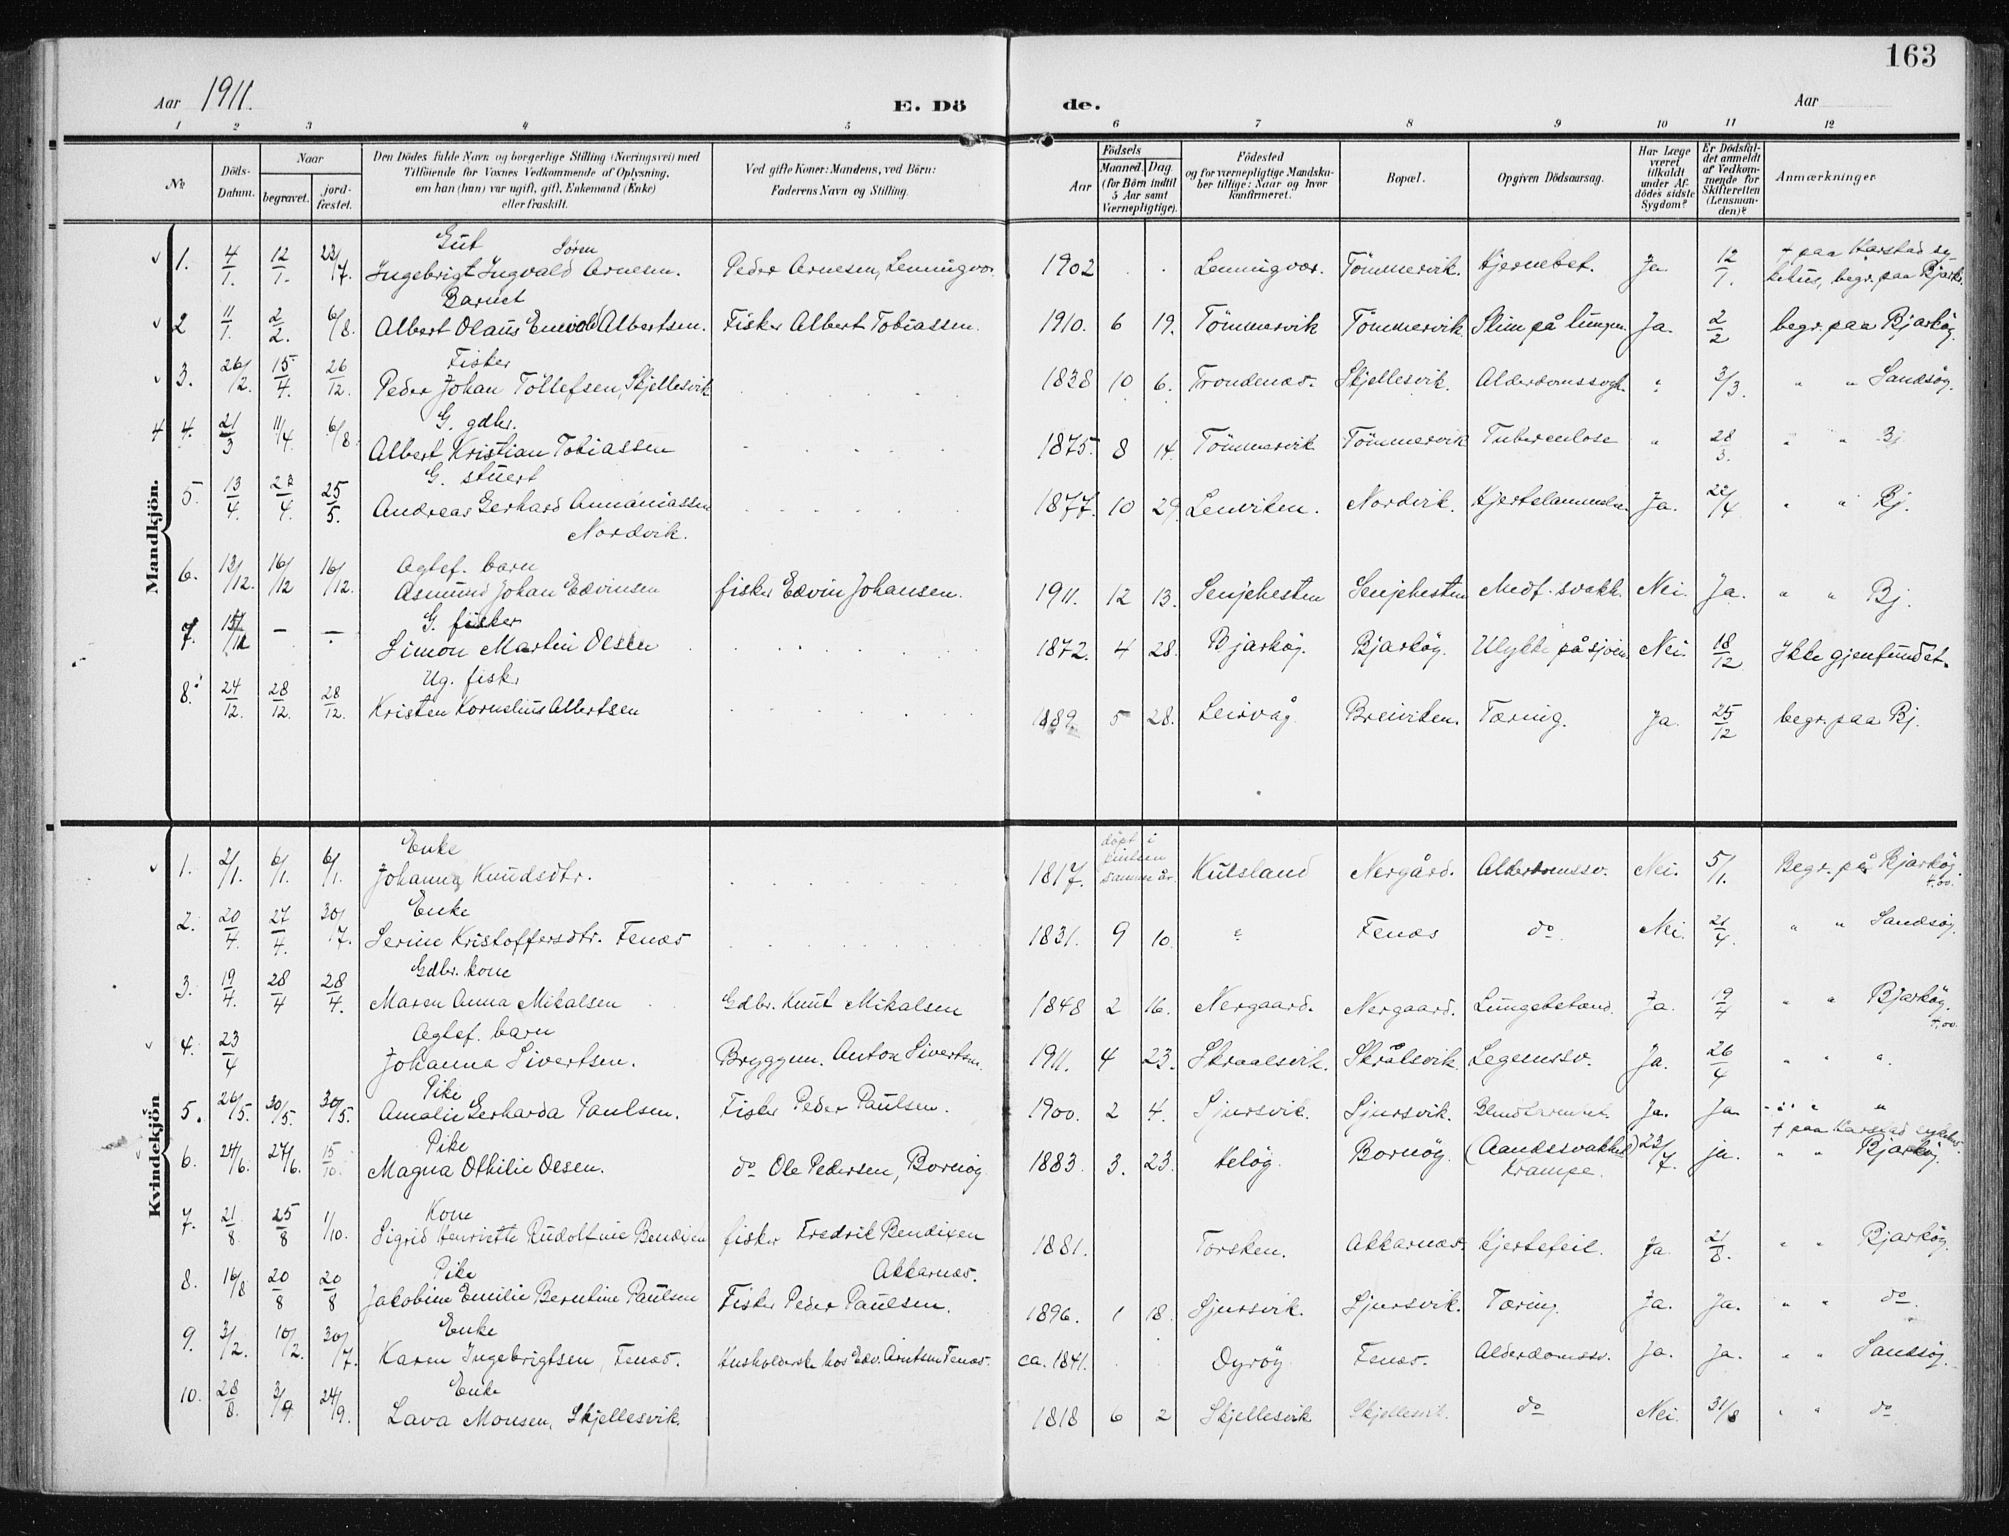 163
Aar 1911. E. Dö de. Aar
1 2 3 4 5 6 7 8 9 10 11 12
№ Döds-Datum. Naar begravet. jord-fæstet. Den Dödes fulde Navn og borgerlige Stilling (Næringsvei) med Tilföiende för Voxnes Vedkommende af Oplysning, om han (hun) var ugift, gift, Enkemand (Enke) eller fraskilt. Ved gifte Koner: Mandens, ved Börn: Faderens Navn og Stilling. Aar Födsels Maaned. Dag (for Börn indtil 5 Aar samt Værnepligtige). Födested og for værnepligtige Mandskaber tillige: Naar og hvor konfirmeret. Bopæl. Opgiven Dödsaarsag. Har Læge været tilkaldt under Afdödes sidste Sygdom? Er Dödsfaldet anmeldt af Vedkommende for Skifteretten (Lensmanden)? Anmærkninger
Mandkjön.
Gut Sören + paa Harstad sy-
1. 4/1. 12/1. 23/7. Ingebrigt Ingvald Arnesen. Peder Arnesen, Lenningvær. 1902 . . Lenningvær. Tömmervik. Hjernebet. Ja. 12/1. kehus, begr. paa Bjarkö.
Barnet
2 11/1. 2/2. 6/8. Albert Olaus Albertsen. Fisker Albert Tobiassen. 1910. 6 19. Tömmervik Tömmervik Slim på lungen. Ja. 2/2 begr. paa Bjarköy.
Fisker
3. 26/12. 15/4. 26/12. Peder Johan Töllefsen, Skjellesvik 1838 10 6. Trondenæs. Skjellesvik. Alderdomssvgh. " 3/3. " " Sandsöy.
G. gdbr.
4 4. 21/3 11/4 6/8. Albert Kristian Tobiassen 1875. 8 14. Tömmervik Tömmervik Tuberculose " 28/3. " " Bj
G. stuert
5. 13/4. 23/4. 25/5. Andreas Gerhard Annaniassen 1877. 10 29. Lenviken. Nordvik. Hjertelammelse Ja. 22/4 " " Bj.
Nordvik.
Ægtef. barn
6. 13/12. 16/12 16/12. Asmund Johan Edvinsen fisker Edvin Johansen. 1911. 12 13. Senjehesten Senjehesten Medf. svakh. Nei. Ja. " " Bj.
G. fisker
7. 15/12 – – Simon Martin Olsen 1872. 4 28. Bjarköy. Bjarköy. Ulykke på sjöen. Nei. 18/12 Ikke gjenfundet.
Ug. fisker
8. 24/12. 28/12. 28/12. Kristen Kornelius Albertsen 1889. 5 28. Leirvåg Breiviken. Tæring. Ja. 25/12 begr. paa Bj.
Kvindekjön
Enke döpt i
1. 2/1. 6/1. 6/1. Johanna Knudsdtr. 1817. samme år. Kulsland Nergård. Alderdomssv. Nei. 5/1. Begr. på Bjarköy.
Enke
2. 20/4. 27/4. 30/7. Serine Kristoffersdtr. Fenæs 1831. 9 10. " Fenæs do Nei. 21/4. " " Sandsöy.
Gdbr. kone
3. 19/4. 28/4 28/4. Maren Anna Mikalsen Gdbr. Knut Mikalsen 1848 2 16. Nergaard. Nergaard. Lungebetænd. Ja. 19/4 " " Bjarköy.
Ægtef. barn
4. 23/4 Johanna Sivertsen. Bryggem. Anton Sivertsen. 1911. 4 23. Skraalsvik. Skrålsvik. Legemssv. Ja. 26/4 " " "
Pike
5. 26/5. 30/5. 30/5. Amalie Gerharda Paulsen. Fisker Peder Paulsen. 1900. 2 4. Sjursvik. Sjursvik. Ja. Ja. " " "
Pike + paa Harstad sykehus.
6. 24/6. 27/6. 15/10. Magna Othilie Olsen. do Ole Pedersen, Bornöy 1883. 3. 23. Helöy. Bornöy. (Aandssvakhet) krampe. 23/7. ja. " " Bjarköy.
Kone
7. 21/8 25/8 1/10. Sigrid Henriette Rudolfine Bendixen fisker Fredrik Bendixen 1881. Torsken. Akkarnæs. Hjertefeil. Ja. 21/8. " " Bjarköy.
Akkarnæs.
Pike
8. 16/8 20/8 20/8 Jakobine Emilie Berntine Paulsen Fisker Peder Paulsen. 1896. 1 18. Sjursvik. Sjursvik. Tæring. Ja. Ja. " " do.
Enke
9. 3/2. 10/2. 30/7. Karen Ingebrigtsen, Fenæs. Husholderske hos Edv. Arntsen Fenæs. ca. 1841. Dyröy Fenæs. Alderdomssv. Ja. Ja. " " Sandsöy.
Enke
10. 28/8. 3/9 24/9. Lava Monsen, Skjellesvik. 1818 6 2 Skjellesvik Skjellesvik. do Nei. 31/8 " " do